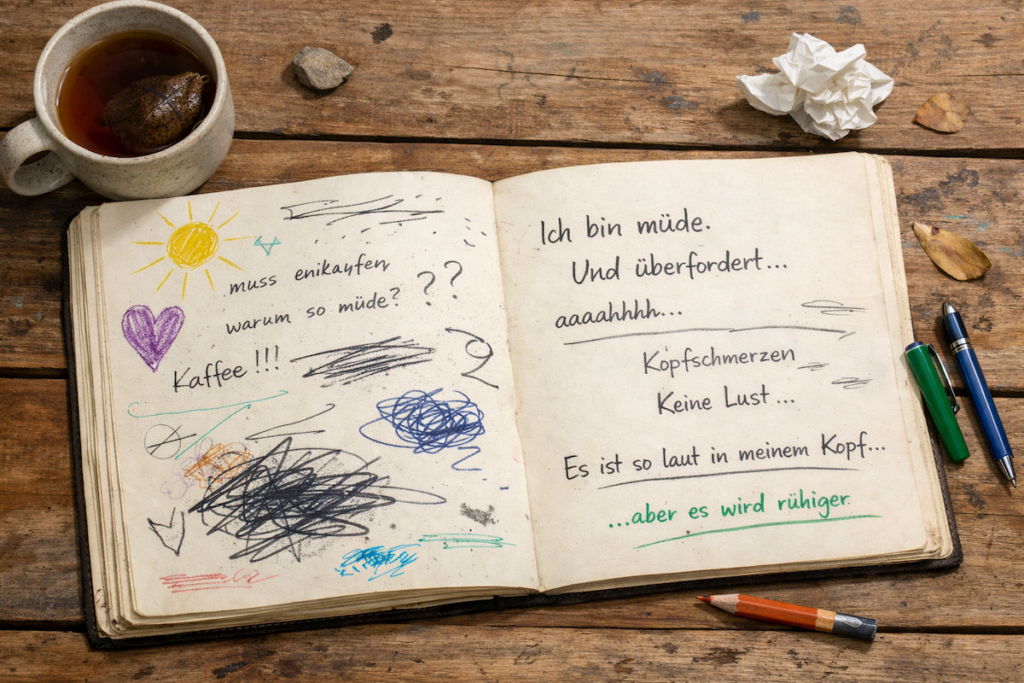 muss enikaufen
warum so müde? ??
Kaffee!!!
Ich bin müde.
Und überfordert...
aaaahhhh...
Kopfschmerzen
Keine Lust...
Es ist so laut in meinem Kopf...
...aber es wird rühiger.